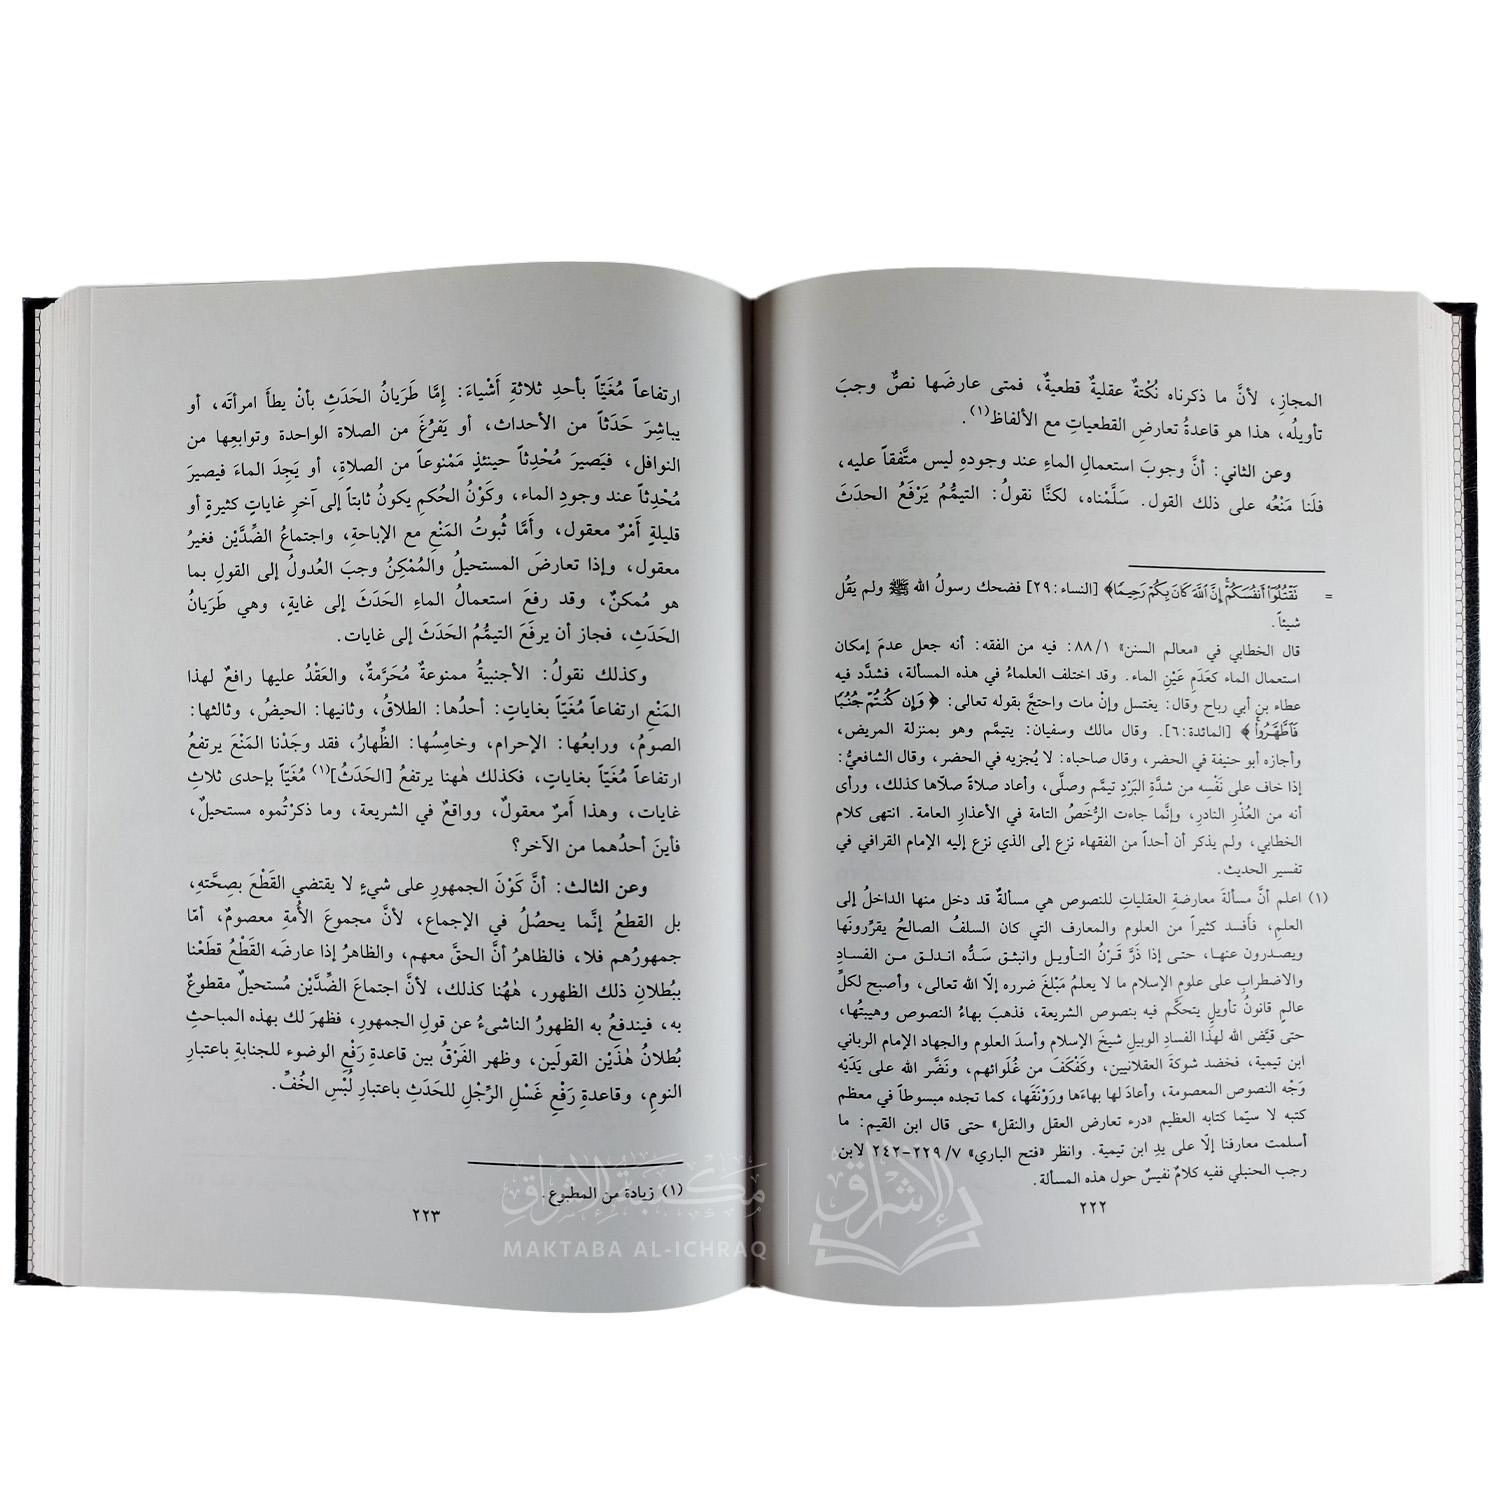 المجازِ، لأنَّ ما ذكرناه نُكْتةٌ عقليةٌ قطعيةٌ، فمتى عارضَها نصٌّ وجبَ
تأويلُه، هذا هو قاعدةُ تعارضِ القطعياتِ مع الألفاظ(١).
وعن الثاني: أنَّ وجوبَ استعمالِ الماءِ عند وجودهِ ليس متَّفقاً عليه،
فلَنا مَنْعُه على ذلك القول. سَلَّمْناه، لكنَّا نقولُ: التيمُّم يَرْفَعُ الحدَثَ
= نَقْتُلُوٓا۟ أَنفُسَكُمْ إِنَّ ٱللَّهَ كَانَ بِكُمْ رَحِيمًا﴾ [النساء: ٢٩] فضحك رسولُ الله ﷺ ولم يَقُل
شيئاً.
قال الخطابي في «معالم السنن» ٨٨/١: فيه من الفقه: أنه جعل عدمَ إمكان
استعمال الماء كعَدَمِ عَيْنِ الماء. وقد اختلف العلماءُ في هذه المسألة، فشدَّد فيه
عطاء بن أبي رباح وقال: يغتسل وإنْ مات واحتجَّ بقوله تعالى: ﴿وَإِن كُنتُمْ جُنُبًا
فَٱطَّهَّرُوا۟﴾ [المائدة: ٦]. وقال مالك وسفيان: يتيمَّم وهو بمنزلة المريض،
وأجازه أبو حنيفة في الحضر، وقال صاحباه: لا يُجزيه في الحضر، وقال الشافعيُّ:
إذا خاف على نَفْسِه من شدَّةِ البَرْدِ تيمَّم وصلَّى، وأعاد صلاةً صلّاها كذلك، ورأى
أنه من العُذْرِ النادرِ، وإنَّما جاءت الرُّخَصُ التامة في الأعذارِ العامة. انتهى كلام
الخطابي، ولم يذكر أن أحداً من الفقهاء نزع إلى الذي نزع إليه الإمام القرافي في
تفسير الحديث.
(١) اعلم أنَّ مسألةَ معارضةِ العقلياتِ للنصوص هي مسألةٌ قد دخل منها الداخلُ إلى
العلم، فأفسد كثيراً من العلوم والمعارف التي كان السلفُ الصالحُ يقرِّرونَها
ويصدرون عنها، حتى إذا ذَرَّ قَرْنُ التأويل وانبثق سَدُّه اندلق من الفسادِ
والاضطرابِ على علوم الإسلام ما لا يعلمُ مَبْلغَ ضرره إلّا الله تعالى، وأصبح لكلِّ
عالمٍ قانونُ تأويلٍ يتحكَّم فيه بنصوص الشريعة، فذهبَ بهاءُ النصوص وهيبتُها،
حتى قيَّض الله لهذا الفسادِ الوبيلِ شيخَ الإسلام وأسدَ العلوم والجهاد الإمام الرباني
ابن تيمية، فخضد شوكةَ العقلانيين، وكَفْكَفَ من غُلَوائهم، ونَضَّر الله على يَدَيْه
وَجْه النصوص المعصومة، وأعادَ لها بهاءَها ورَوْنَقَها، كما تجده مبسوطاً في معظم
كتبه لا سيَّما كتابه العظيم «درء تعارض العقل والنقل» حتى قال ابن القيم: ما
أسلمت معارفنا إلّا على يدِ ابن تيمية. وانظر «فتح الباري» ٢٢٩/٧-٢٤٢ لابن
رجب الحنبلي ففيه كلامٌ نفيسٌ حول هذه المسألة.
٢٢٢
ارتفاعاً مُغَيّاً بأحدِ ثلاثةِ أَشْياءَ: إمَّا طَرَيانُ الحَدَثِ بأنْ يطأَ امرأتَه، أو
يباشِرَ حَدَثاً من الأحداث، أو يَفرُغَ من الصلاة الواحدة وتوابعِها من
النوافل، فيَصيرَ مُحْدِثاً حينئذٍ مَمْنوعاً من الصلاةِ، أو يَجِدَ الماءَ فيصيرَ
مُحْدِثاً عند وجودِ الماء، وكَوْنُ الحُكمِ يكونُ ثابتاً إلى آخرِ غاياتٍ كثيرةٍ أو
قليلةٍ أَمْرٌ معقول، وأَمَّا ثُبوتُ المَنْعِ مع الإباحةِ، واجتماعُ الضِّدَّيْن فغيرُ
معقول، وإذا تعارضَ المستحيلُ والمُمْكِنُ وجبَ العُدولُ إلى القولِ بما
هو مُمكنٌ، وقد رفعَ استعمالُ الماءِ الحَدَثَ إلى غايةٍ، وهي طَرَيانُ
الحَدَثِ، فجاز أن يرفَعَ التيمُّمُ الحَدَثَ إلى غايات.
وكذلك نقولُ: الأجنبيةُ ممنوعةٌ مُحَرَّمةٌ، والعَقْدُ عليها رافعٌ لهذا
المَنْعِ ارتفاعاً مُغَيّاً بغاياتٍ: أحدُها: الطلاقُ، وثانيها: الحيضُ، وثالثها:
الصومُ، ورابعُها: الإحرام، وخامِسُها: الظِّهارُ، فقد وجَدْنا المَنْعَ يرتفعُ
ارتفاعاً مُغَيّاً بغاياتٍ، فكذلك هٰهنا يرتفعُ [الحَدَثُ](١) مُغَيّاً بإحدى ثلاثِ
غايات، وهذا أَمرٌ معقولٌ، وواقعٌ في الشريعة، وما ذكرْتُموه مستحيلٌ،
فأينَ أحدُهما من الآخر؟
وعن الثالث: أنَّ كَوْنَ الجمهورِ على شيءٍ لا يقتضي القَطْعَ بصِحَّتهِ،
بل القطعُ إنَّما يحصُلُ في الإجماع، لأنَّ مجموعَ الأُمةِ معصومٌ، أمّا
جمهورُهم فلا، فالظاهرُ أنَّ الحقَّ معهم، والظاهرُ إذا عارضَه القَطْعُ قطَعْنا
ببُطلانِ ذلك الظهور، هٰهُنا كذلك، لأنَّ اجتماعَ الضِّدَّيْنِ مُستحيلٌ مقطوعٌ
به، فيندفعُ به الظهورُ الناشىءُ عن قولِ الجمهورِ، فظهرَ لك بهذه المباحثِ
بُطلانُ هٰذَيْن القولَين، وظهر الفَرْقُ بين قاعدةِ رَفْعِ الوضوء للجنابةِ باعتبارِ
النومِ، وقاعدةِ رَفْعِ غَسْلِ الرِّجْلِ للحَدَثِ باعتبارِ لُبْسِ الخُفِّ.
(١) زيادة من المطبوع.
٢٢٣
مكتبة الإشراق
MAKTABA AL-ICHRAQ
الإشراق